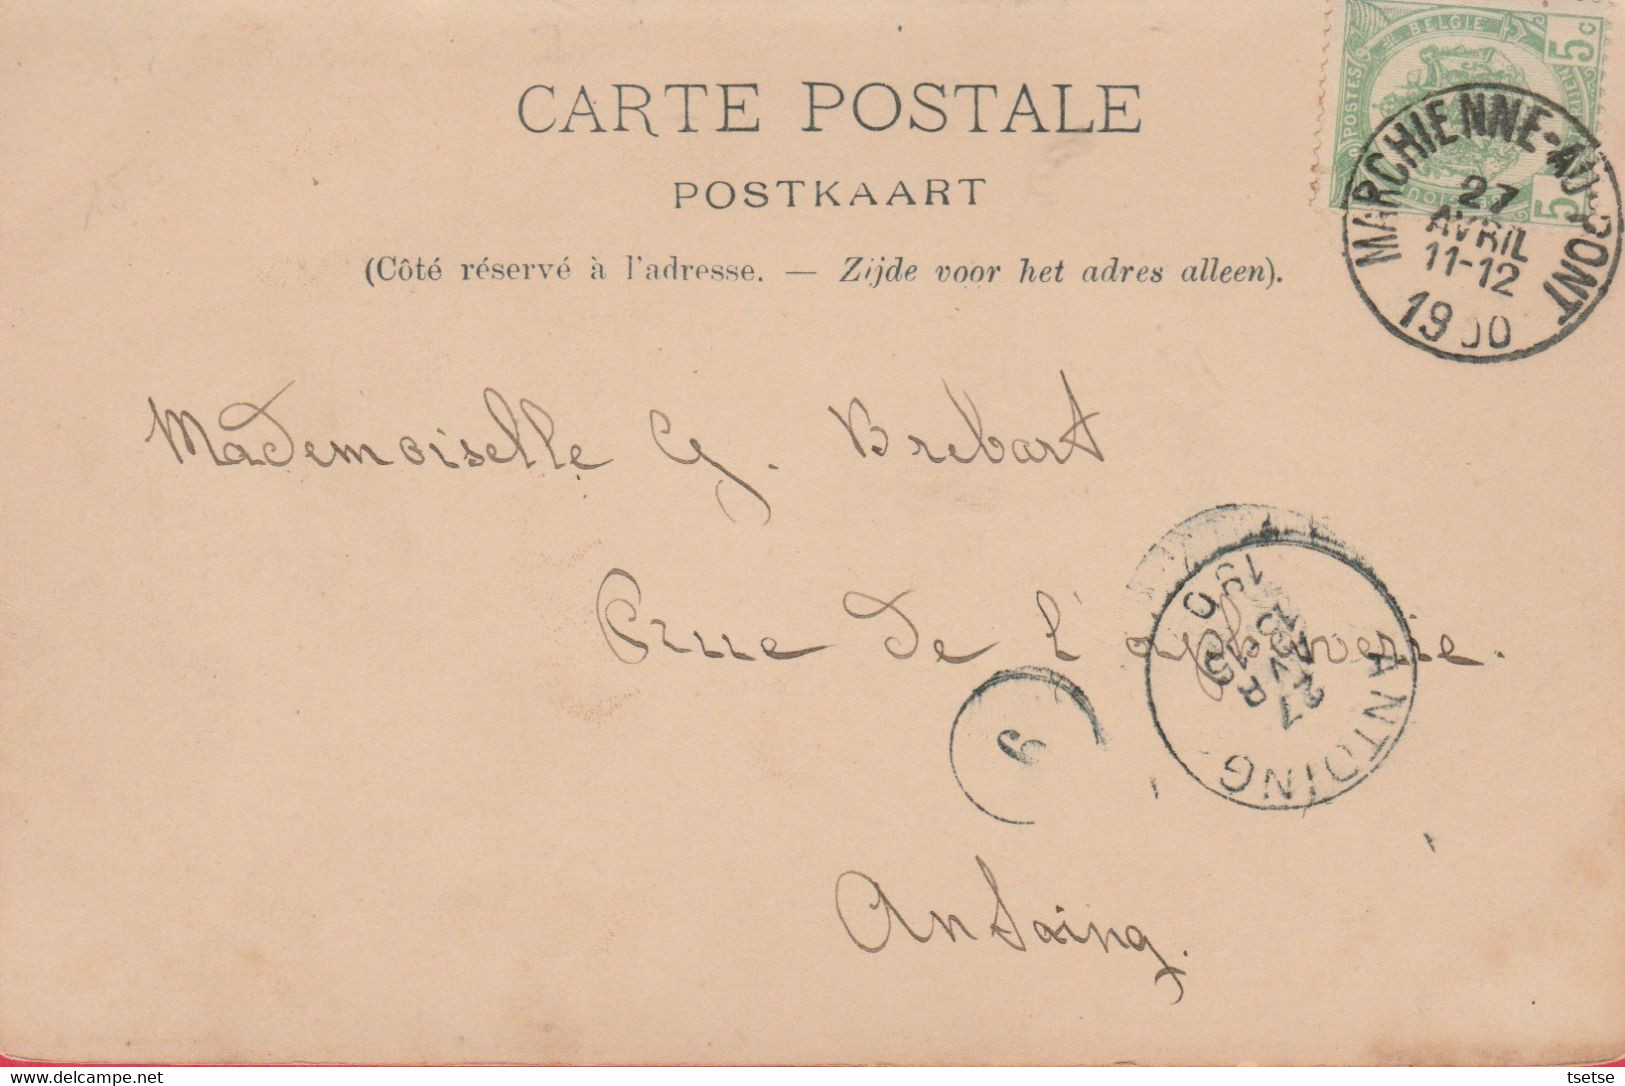 BELGIE
5 c
POSTES
5
CARTE POSTALE
POSTKAART
(Côté réservé à l'adresse. — Zijde voor het adres alleen).
MARCHIENNE-AU-PONT
27
AVRIL
11-12
1900
Mademoiselle G. Brebart
Rue de l'
ANTOING
27
AVR
1900
9
Antoing.
tsetse